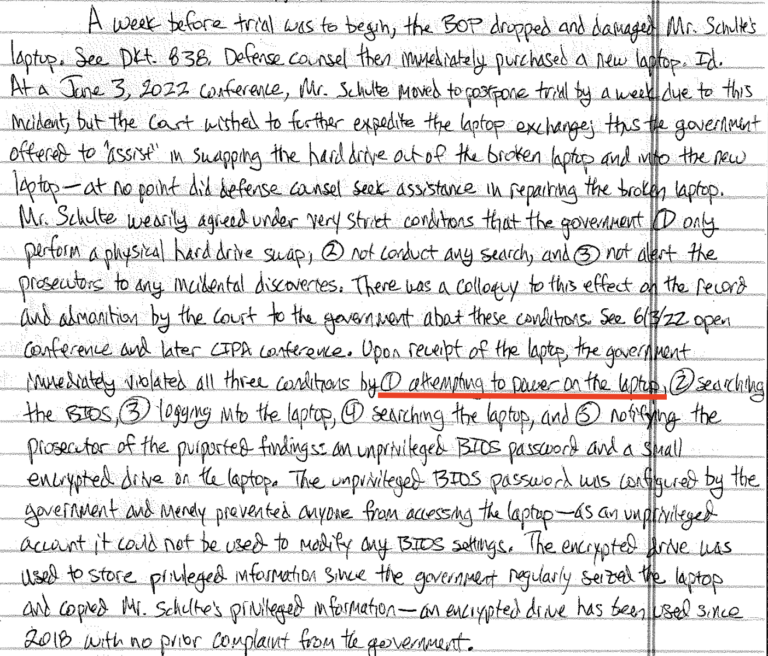 A week before trial was to begin, the BOP dropped and damaged Mr. Schulte's
laptop. See Dkt. 838. Defense counsel then immediately purchased a new laptop. Id.
At a June 3, 2022 conference, Mr. Schulte moved to postpone trial by a week due to this
incident, but the Court wished to further expedite the laptop exchange; thus the government
offered to "assist" in swapping the hard drive out of the broken laptop and into the new
laptop—at no point did defense counsel seek assistance in repairing the broken laptop.
Mr. Schulte wearily agreed under very strict conditions that the government ① only
perform a physical hard drive swap, ② not conduct any search, and ③ not alert the
prosecutors to any incidental discoveries. There was a colloquy to this effect on the record
and admonition by the Court to the government about these conditions. See 6/3/22 open
conference and later CIPA conference. Upon receipt of the laptop, the government
immediately violated all three conditions by ① attempting to power on the laptop, ② searching
the BIOS, ③ logging into the laptop, ④ searching the laptop, and ⑤ notifying the
prosecutor of the purported findings: an unprivileged BIOS password and a small
encrypted drive on the laptop. The unprivileged BIOS password was configured by the
government and merely prevented anyone from accessing the laptop—as an unprivileged
account it could not be used to modify any BIOS settings. The encrypted drive was
used to store privileged information since the government regularly seized the laptop
and copied Mr. Schulte's privileged information—an encrypted drive has been used since
2018 with no prior complaint from the government.